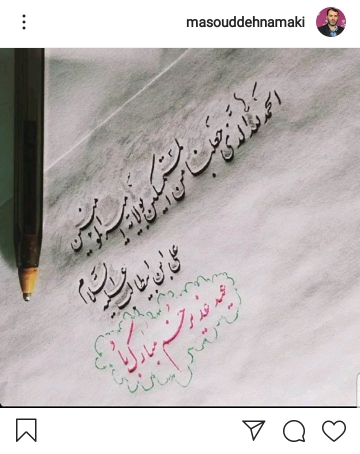 masouddehnamaki
الحمد لله الذی جعلنا من المتمسکین بولایة امیرالمومنین
علی بن ابیطالب علیه السلام
عید غدیر خم مبارک باد